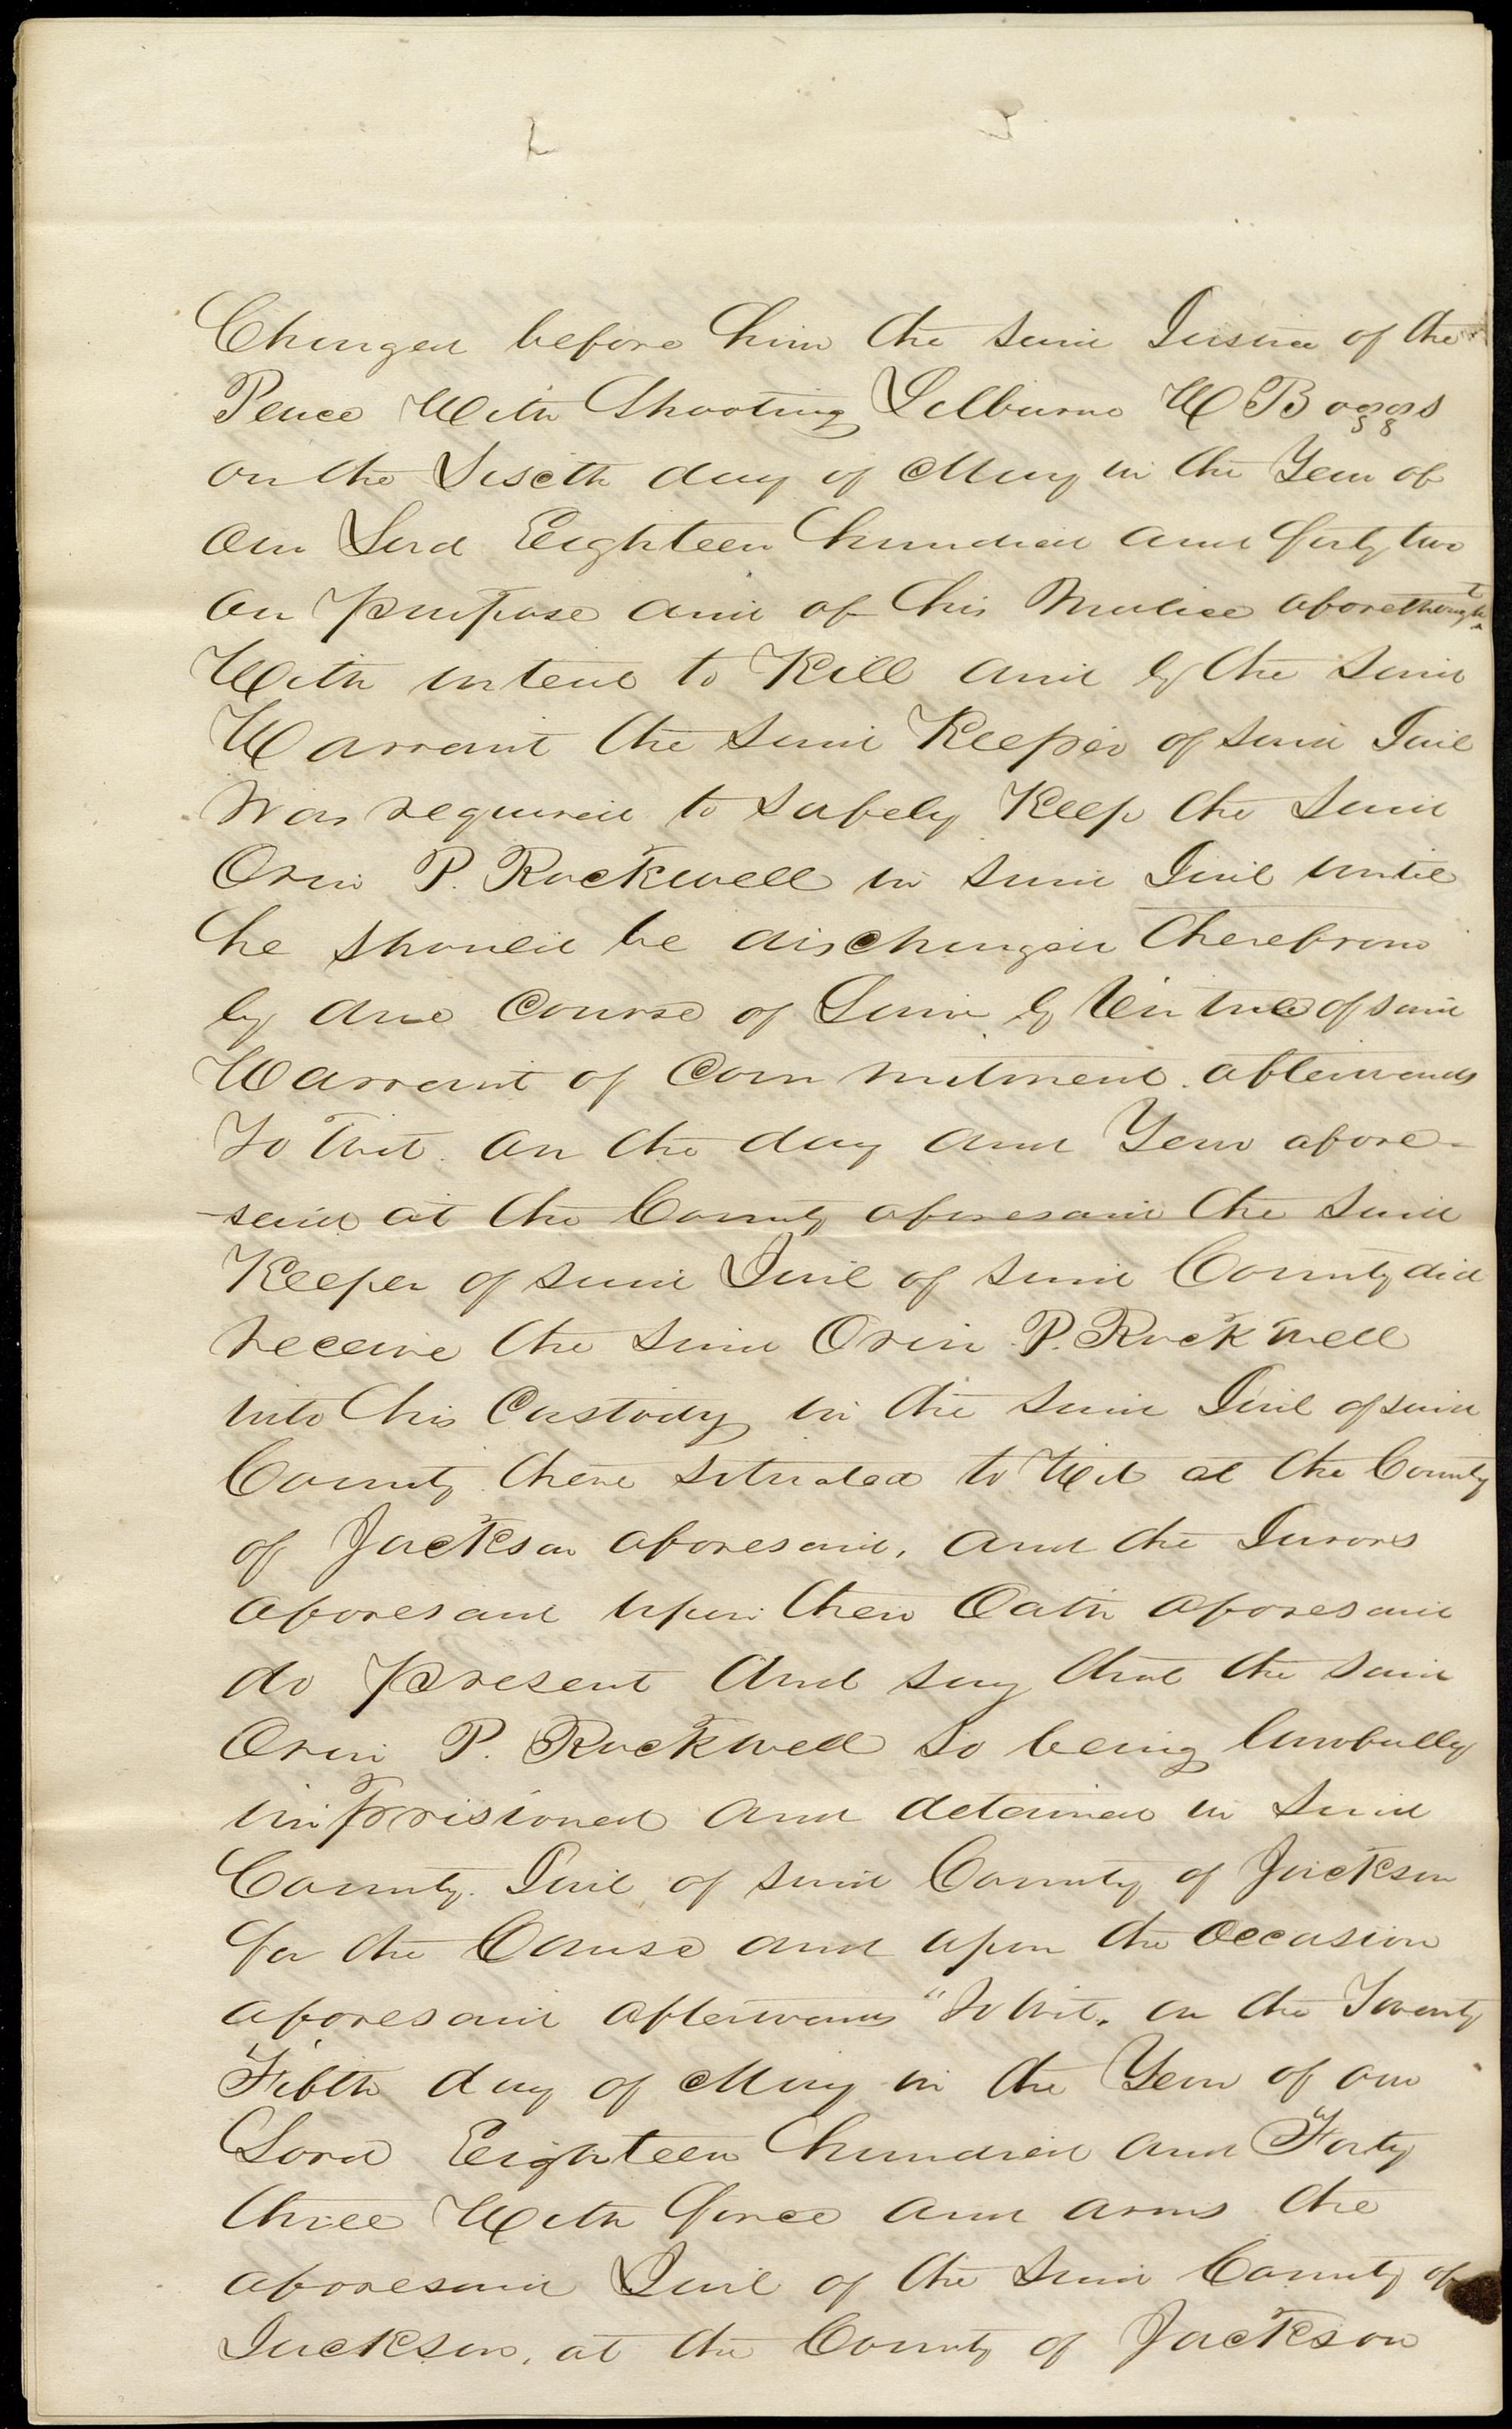 Charged before him the said Justice of the
Peace With Shooting Lilburne W Boggs
on the Sixth day of May in the Year of
our Lord Eighteen hundred and forty two
on purpose and of his Malice aforethought
With intent to Kill and by the said
Warrant the said Keeper of said Jail
was required to safely Keep the said
Orin P. Rockwell in said Jail until
he should be discharged therefrom
by due Course of Law by Virtue of said
Warrant of Commitment. afterwards
To Wit. on the day and Year afore-
-said at the County aforesaid the said
Keeper of said Jail of said County did
receive the said Orin P. Rockwell
into his Custody in the said Jail of said
County there situated to Wit at the County
of Jackson aforesaid, and the Jurors
aforesaid upon their Oath aforesaid
do present And say that the said
Orin P. Rockwell so being lawfully
imprisioned and detained in said
County Jail of said County of Jackson
for the Cause and upon the occasion
aforesaid afterwards "to wit, on the Twenty
Fifth day of May in the Year of our
Lord Eighteen hundred and Forty
three With force and arms the
aforesaid Jail of the said County of
Jackson, at the County of Jackson